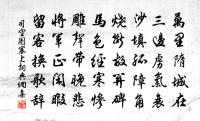 萬里隋城在
三邊虜氣衰
沙填孤障角
燒斷故關碑
馬色經寒慘
雕聲帶晚悲
將軍正閑暇
留客換歌辭
司空圖塞上